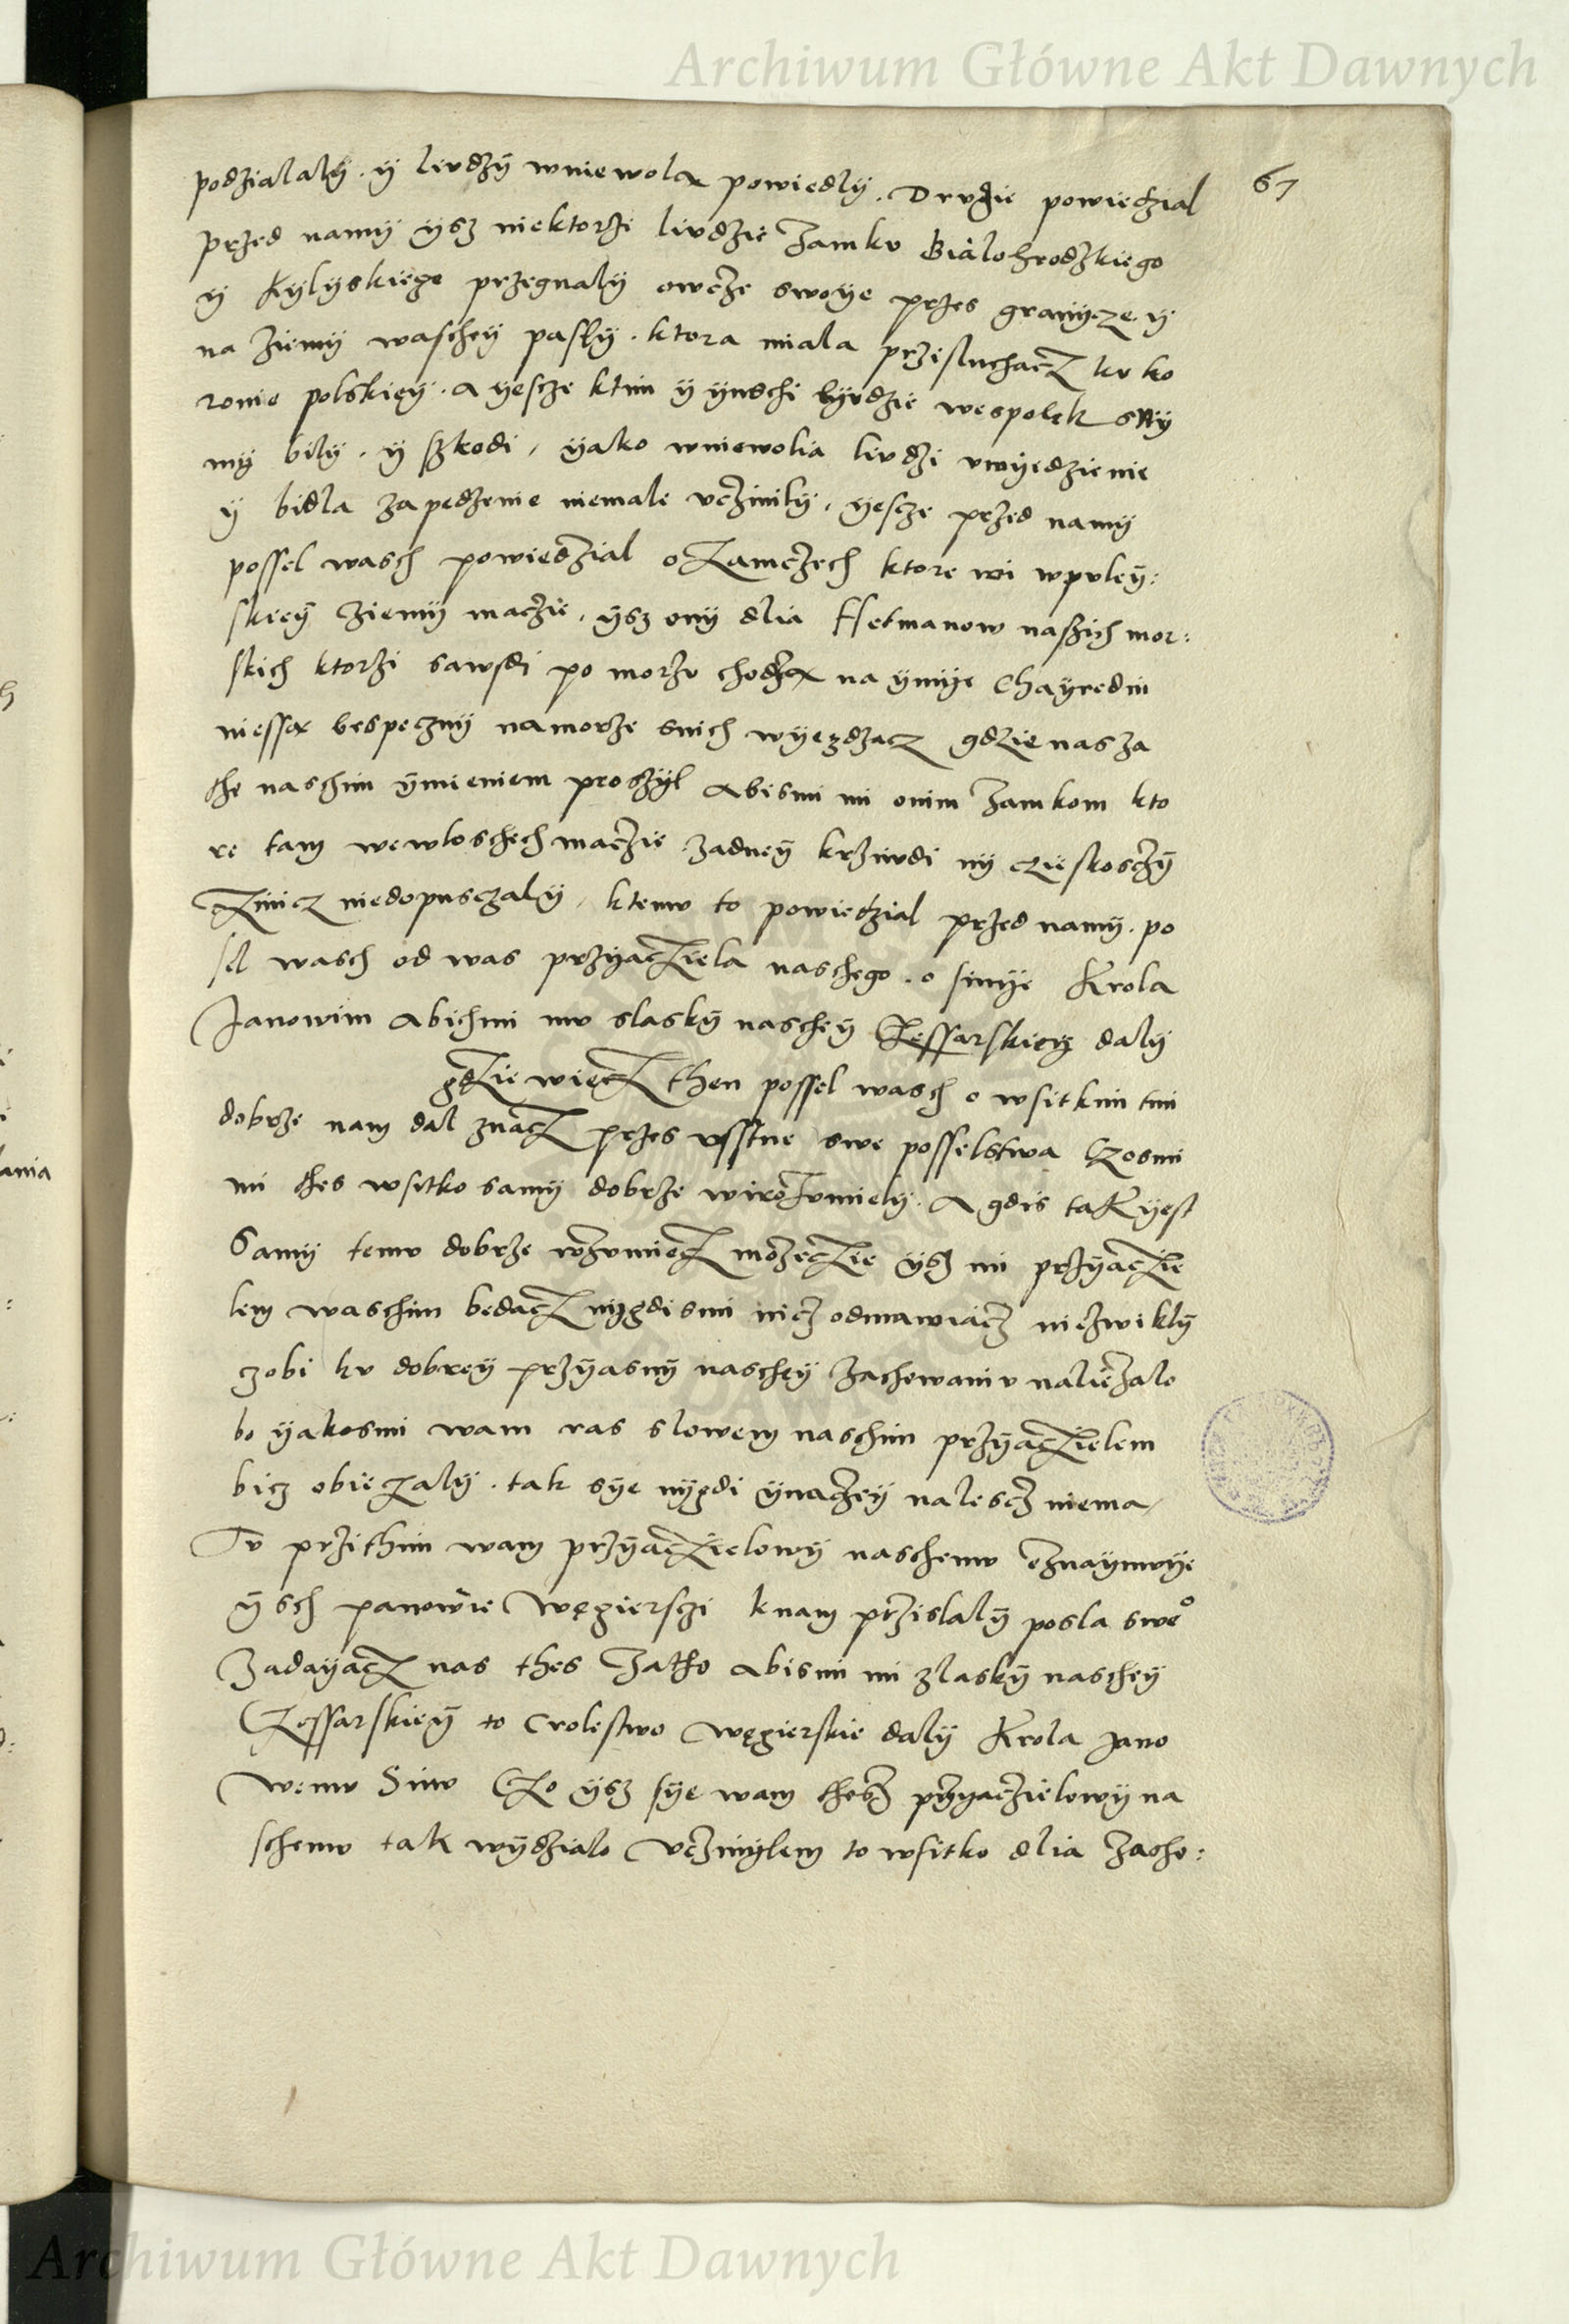 Archiwum Główne Akt Dawnych
67
podzialaly. y liudzy wniewolą powiedly. Drugie powiedzial
przed namy ysz niektorzi liudzie zamku Bialohrodzkiego
y Kylyskiego przegnaly owcze swoye przes granycze y
na ziemy waschey pasly. ktora miala przisluchacz ku ko
ronie polskiey. A yescze ktim y ynschi lyudzie wespolek sny
my bily. y szkodi, yako wniewolia liudzi uwyedzienie
y bidla zapedzenie niemale uczinily, yescze przed namy
possel wasch powiedzial o zamczech ktore wi wpuley:
skiey ziemy maczie, ysz ony dlia Hetmanow naszich mor:
skich ktorzi sawsdi po morzu chodzą na ymye Chayredin
niessą bespeczny namorze snich wyezdzacz gdzie nas za
the naschim ymieniem proszyl Abismi mi onim zamkom kto
re tam wewloschech maczie zadney krziwdi ny czieskosczy
czinicz niedopusczaly, ktemu to powiedzial przed namy. po
sel wasch od was przyacziela naschego. o sinye Krola
Janowim Abichmi mu slasky naschey Czessarskiey daly
gdzie wiecz then possel wasch o wsitkim tim
dobrze nam dal znacz przes usstne swe posselstwa Czosmi
mi thes wsitko samy dobrze wirozumiely. A gdis tak yest
Samy temu dobrze rozumiecz mozeczie ysz mi przyaczie
lem waschim bedacz nygdismi nicz odmawiacz niezwikly
czobi ku dobrey przyasny naschey zachowaniu naliezalo
bo yakosmi wam ras slowem naschim przyaczielem
bicz obieczaly. tak sye nygdi ynaczey nalescz niema,
Tu przithim wam przyaczielowy naschemu oznaymuye
ysch panowie Węgierszi knam przislaly posla sweo
Zadayacz nas thes zatho Abismi mi zlasky naschey
Czessarskiey to Crolestwo Węgierskie daly Krola Jano
wemu Sinu Czo ysz sye wam thesz przyaczielowy na
schemu tak wydzialo Uczinylem to wsitko dlia zacho:
Archiwum Główne Akt Dawnych